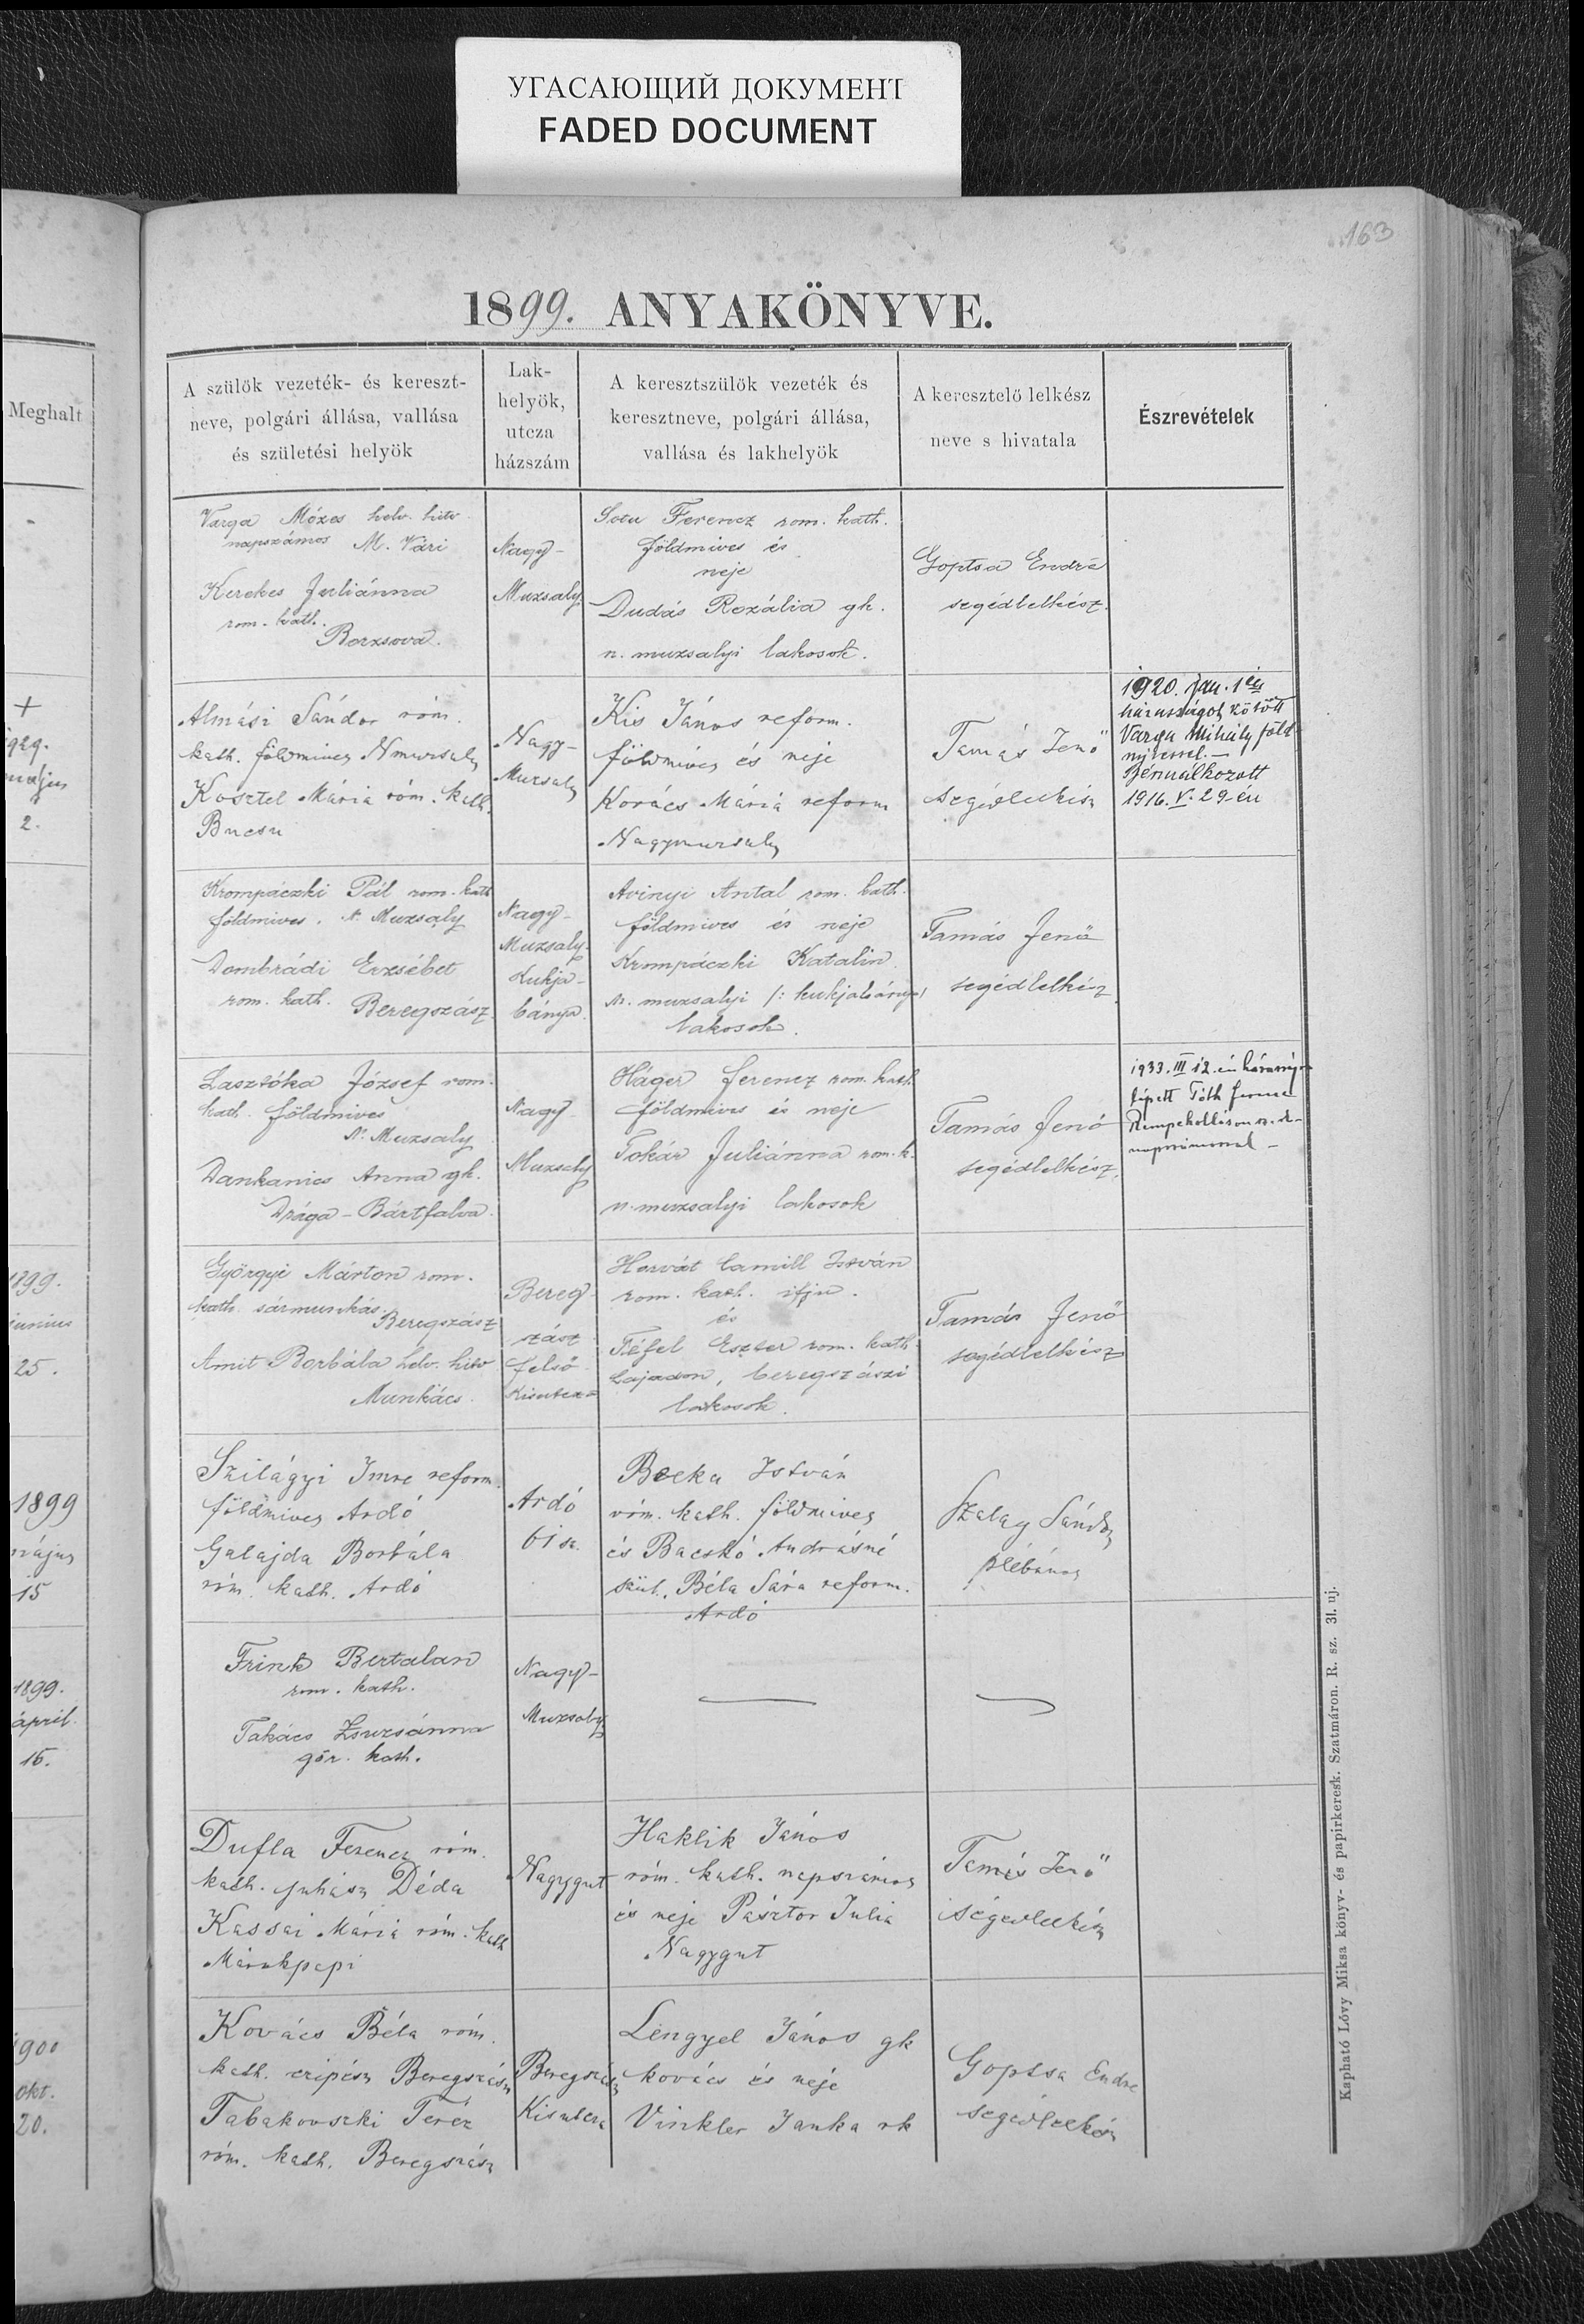 УГАСАЮЩИЙ ДОКУМЕНТ
FADED DOCUMENT
163
1899. ANYAKÖNYVE.
Meghalt
A szülők vezeték- és kereszt-
neve, polgári állása, vallása
és születési helyök
Lak-
helyök,
utcza
házszám
A keresztszülők vezeték és
keresztneve, polgári állása,
vallása és lakhelyök
A keresztelő lelkész
neve s hivatala
Észrevételek
Varga Mózes helv. hitv
napszámos M. Vári
Kerekes Juliánna
rom. kath.
Borzsova.
Nagy-
Muzsaly
Ferencz rom. kath.
földmives és
neje
Dudás Rozália gk.
n. muzsalyi lakosok.
Goptsa Endre
segédlelkész.
+
2.
Almási Sándor róm.
kath. földmives Nmuzsaly
Kosztel Mária róm. kath.
Bucsu
Nagy-
Muzsaly
Kis János reform.
földmives és neje
Kovács Mária reform
Nagymuzsaly
Tamás Jenő
segédlelkész
1920. jan. 1én
házasságot kötött
Varga Mihály föld
Bérmálkozott
1916. V. 29-én
Krompáczki Pál rom. kath
földmives. N. Muzsaly
Dombrádi Erzsébet
rom. kath. Beregszász.
Nagy-
Muzsaly.
Kukja-
bánya.
Avinyi Antal rom. kath.
földmives és neje
Krompáczki Katalin
n. muzsalyi /: kukjabánya/
lakosok.
Tamás Jenő
segédlelkész
Lasztóka József rom.
kath. földmives
N. Muzsaly
Dankanics Anna gk.
Drága-Bártfalva.
Nagy-
Muzsaly
Háger Ferencz rom. kath.
földmives és neje
Tokár Juliánna rom. k.
n. muzsalyi lakosok
Tamás Jenő
segédlelkész.
1933. III 12. én
lépett Tóth
1899.
junius
25.
Györgyi Márton rom.
kath. sármunkás.
Beregszász
Amit Borbála helv. hitv
Munkács.
Bereg-
szász
felső
Kisutcza
Horvát Camill István
rom. kath. ifju.
és
Téfel Eszter rom. kath.
hajadon, beregszászi
lakosok.
Tamás Jenő
segédlelkész
1899
május
15
Szilágyi Imre reform.
földmives Ardó
Galajda Borbála
róm. kath. Ardó
Ardó
61 sz.
Becka István
róm. kath. földmives
és Bacskó Andrásné
szül. Béla Sára reform.
Ardó
Szalay Sándor
plébános
1899.
ápril.
15.
Frink Bertalan
rom. kath.
Takács Zsuzsánna
gör. kath.
Nagy-
Muzsaly
Dufla Ferencz róm.
kath. juhász Déda
Kassai Mária róm. kath
Márokpapi
Nagygut
Haklik János
róm. kath. napszámos
és neje Pásztor Julia
Nagygut
Tamás Jenő
segédlelkész
1900
okt.
20.
Kovács Béla róm.
kath. czipész Beregszász
Tabakovszki Teréz
róm. kath. Beregszász
Beregszász
Kisutcza
Lengyel János gk
kovács és neje
Vinkler Janka rk
Goptsa Endre
segédlelkész
Kapható Lővy Miksa könyv- és papirkeresk. Szatmáron. R. sz. 31. uj.